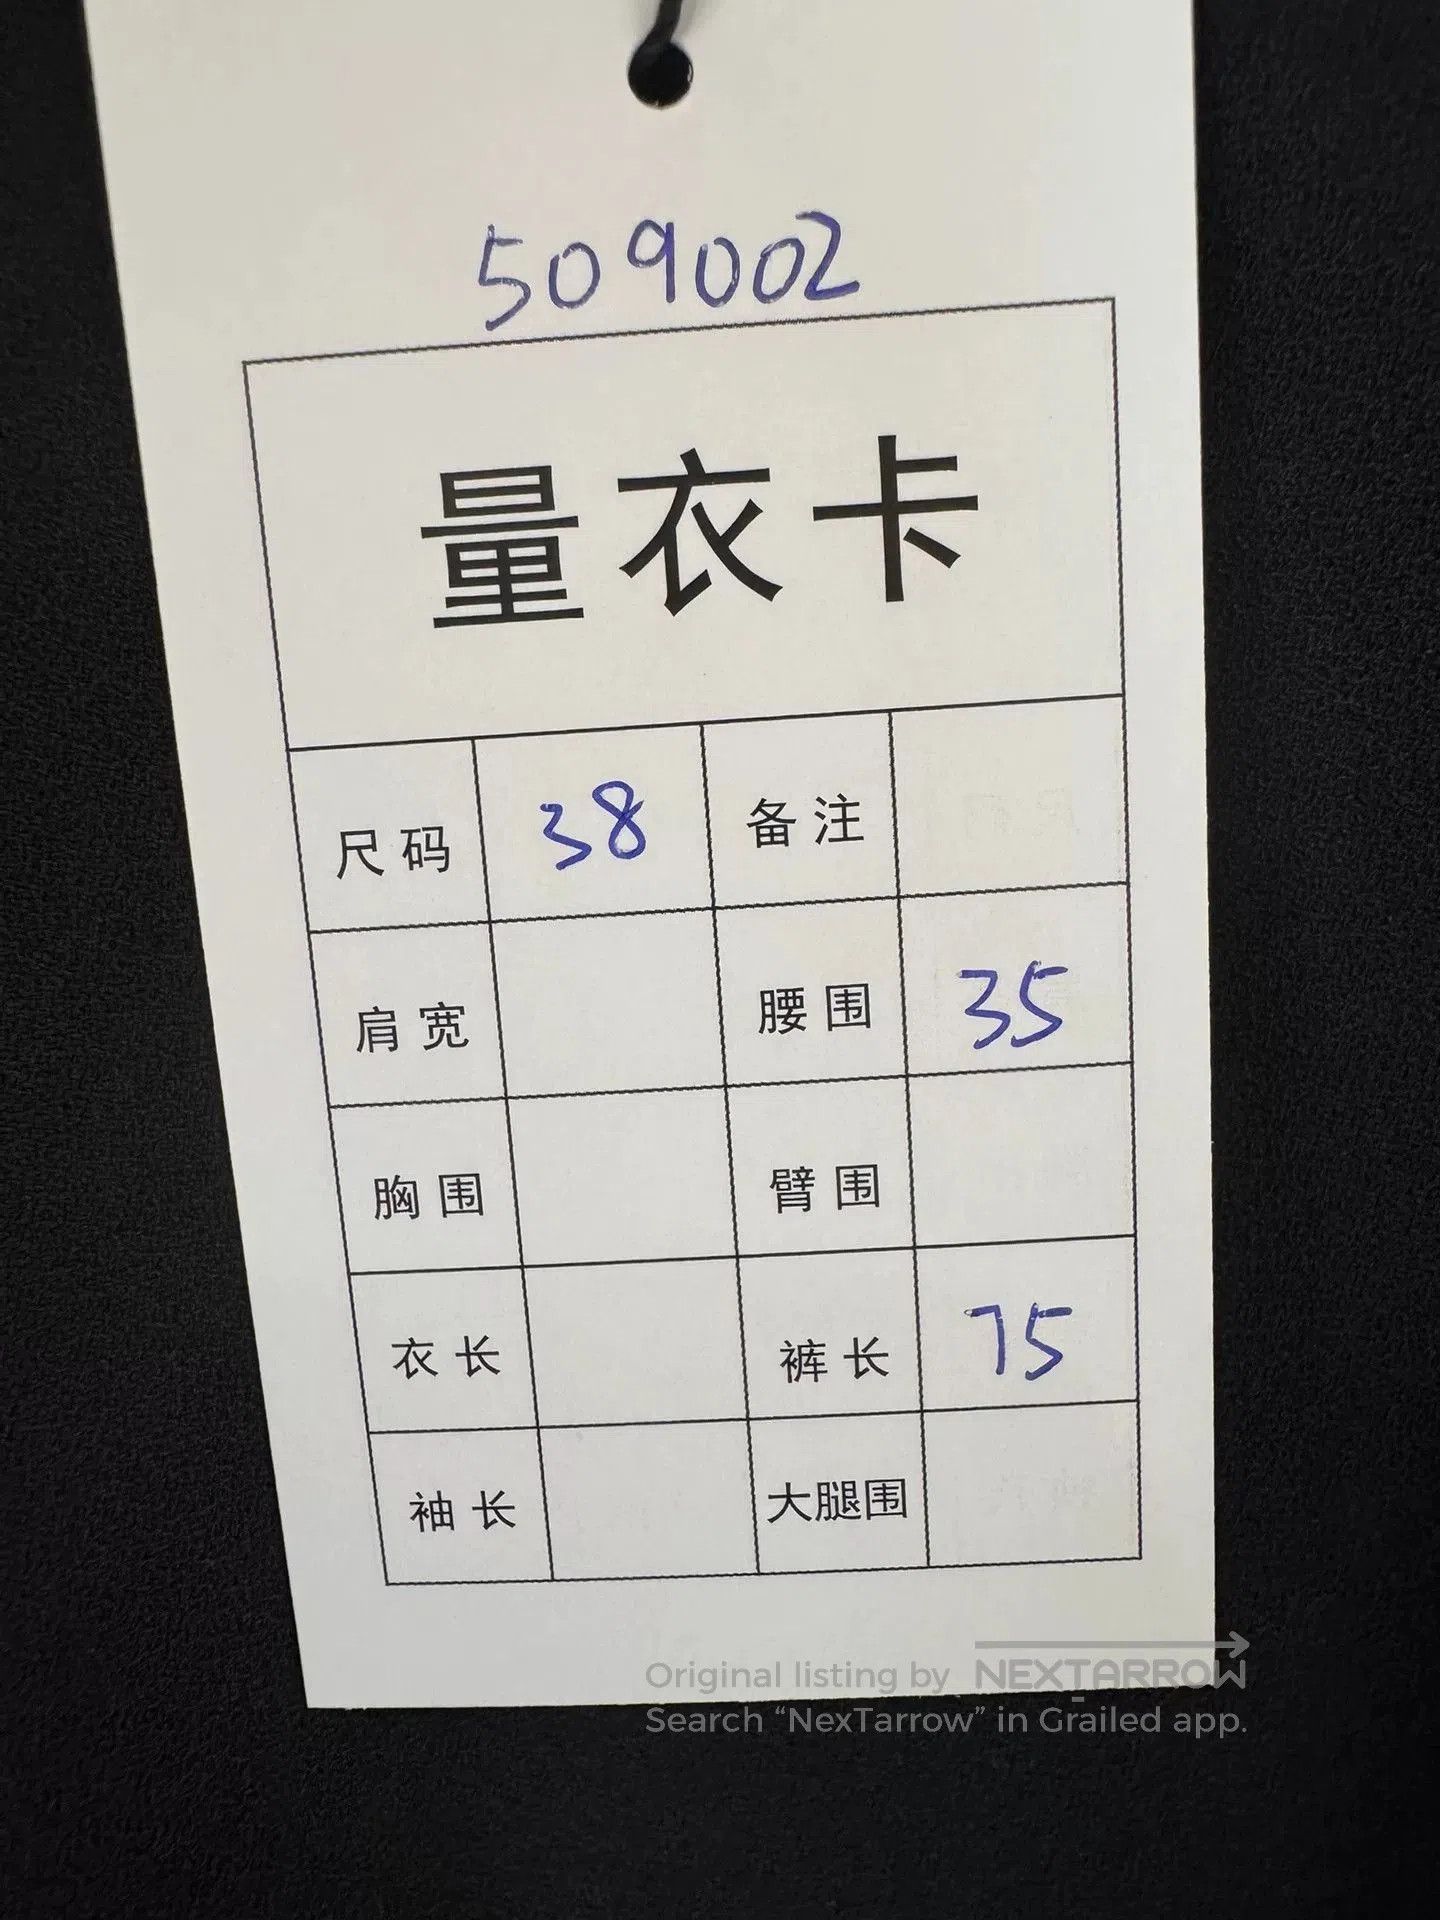 509002
量衣卡
尺码 38 备注
肩宽 腰围 35
胸围 臂围
衣长 裤长 75
袖长 大腿围
Original listing by NEXTARROW
Search “NexTarrow” in Grailed app.